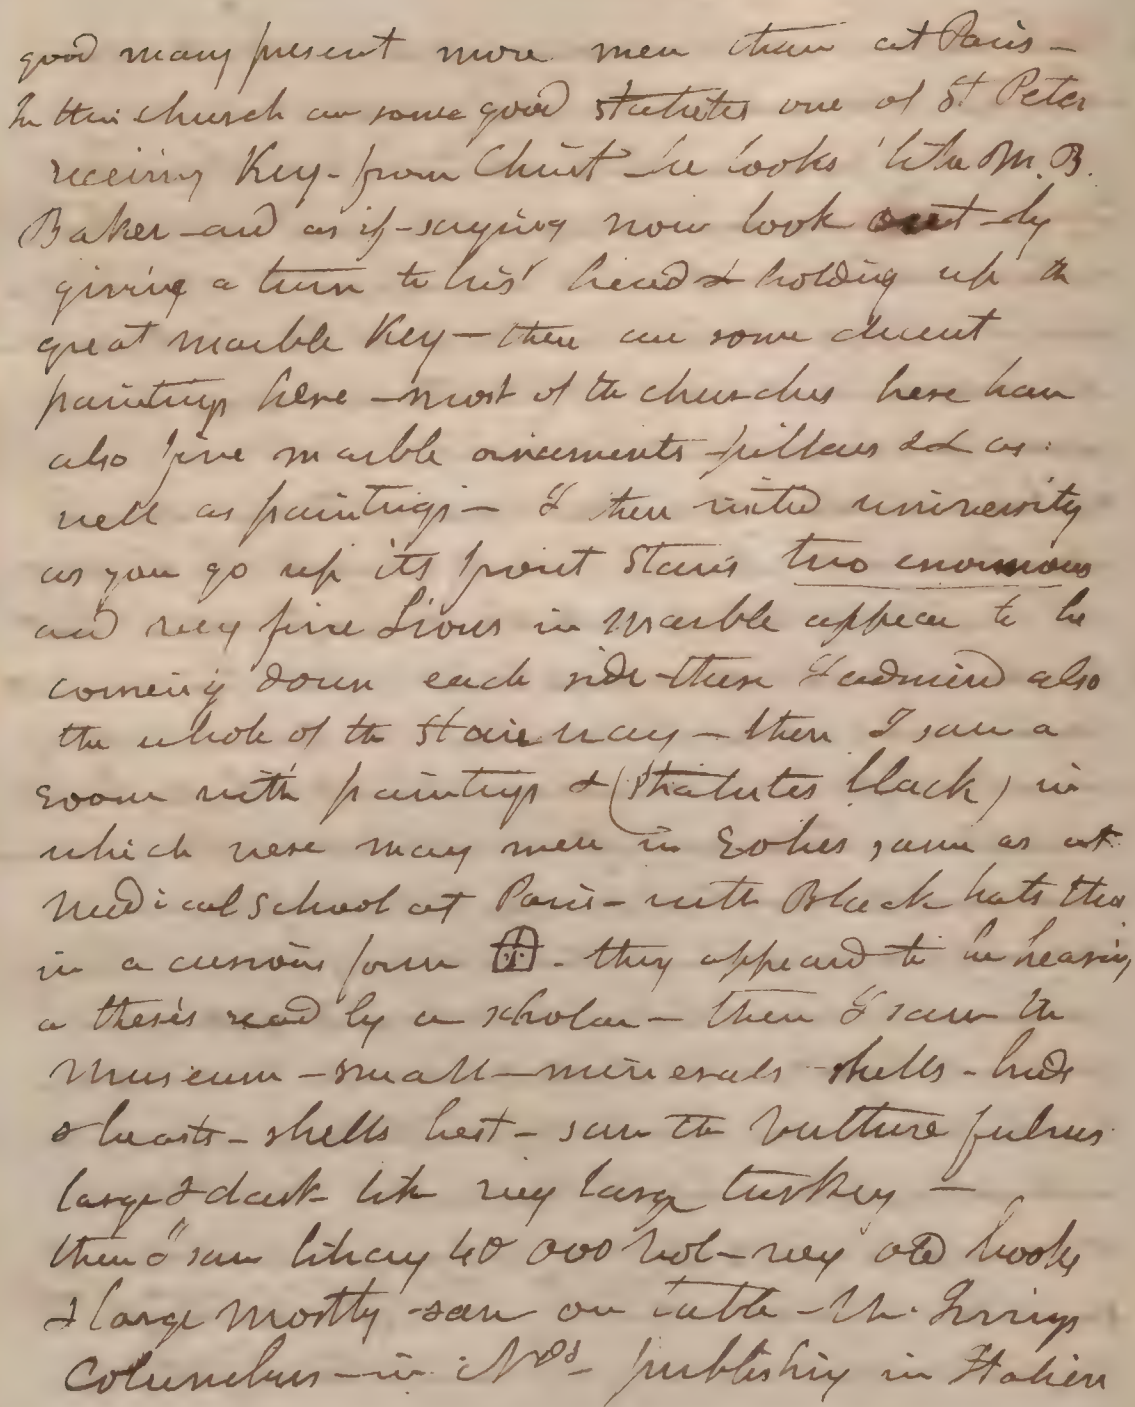 good many present more men than at Paris -
In this church are some good statutes one of St Peter
receiving Key - from Christ - he looks like M. B.
Baker - and as if - saying now look out - by
giving a turn to his head & holding up the
great marble Key - there are some decent
paintings here - most of the churches here have
also fine marble ornaments - pillars && as
well as paintings - I then visited university
as you go up its front stairs two enormous
and very fine Lions in marble appear to be
coming down each side - these I admired also
the whole of the stair way - then I saw a
room with paintings & (statutes black) in
which were many men in Robes, same as at
Medical School at Paris - with Black hats this
in a curious form - they appeard to be hearing
a thesis read by a scholar - then I saw the
Museum - small - minerals - shells - birds
& beasts - shells best - saw the vulture fulvus
large & dark like very large turkey -
then I saw library 40 000 vol - very old books
& large mostly - saw on table - W. Irvings
Columbus - in Nos - publishing in Italien